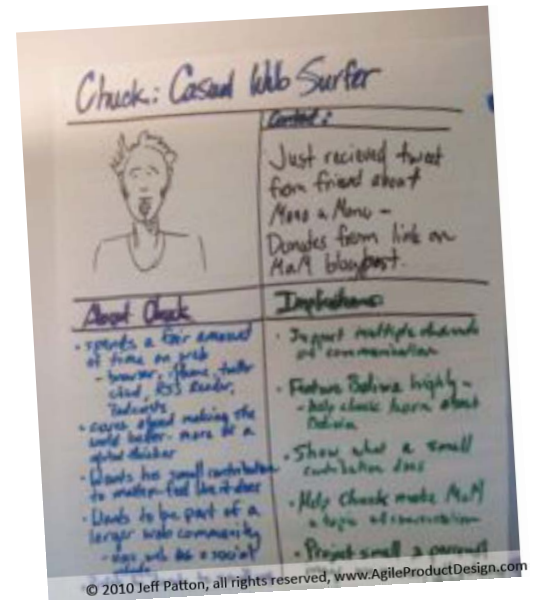 Chuck: Casual Web Surfer
Context:
Just recieved tweet
from friend about
Mano a Mano -
Donates from link on
MaM blogpost.
About Chuck
Implications
• spends a fair amount
of time on web
- browser, iphone, twitter
client, RSS Reader,
Podcasts
• cares about making the
world better - more of a
global thinker
• Wants his small contribution
to matter - feel like it does
• Wants to be part of a
larger web community
- sees web as a social
• Support multiple channels
of communication
• Feature Bolivia highly -
- help chuck learn about
Bolivia
• Show what a small
contribution does
• Help Chuck make MaM
a topic of conversation
• Project small a
© 2010 Jeff Patton, all rights reserved, www.AgileProductDesign.com